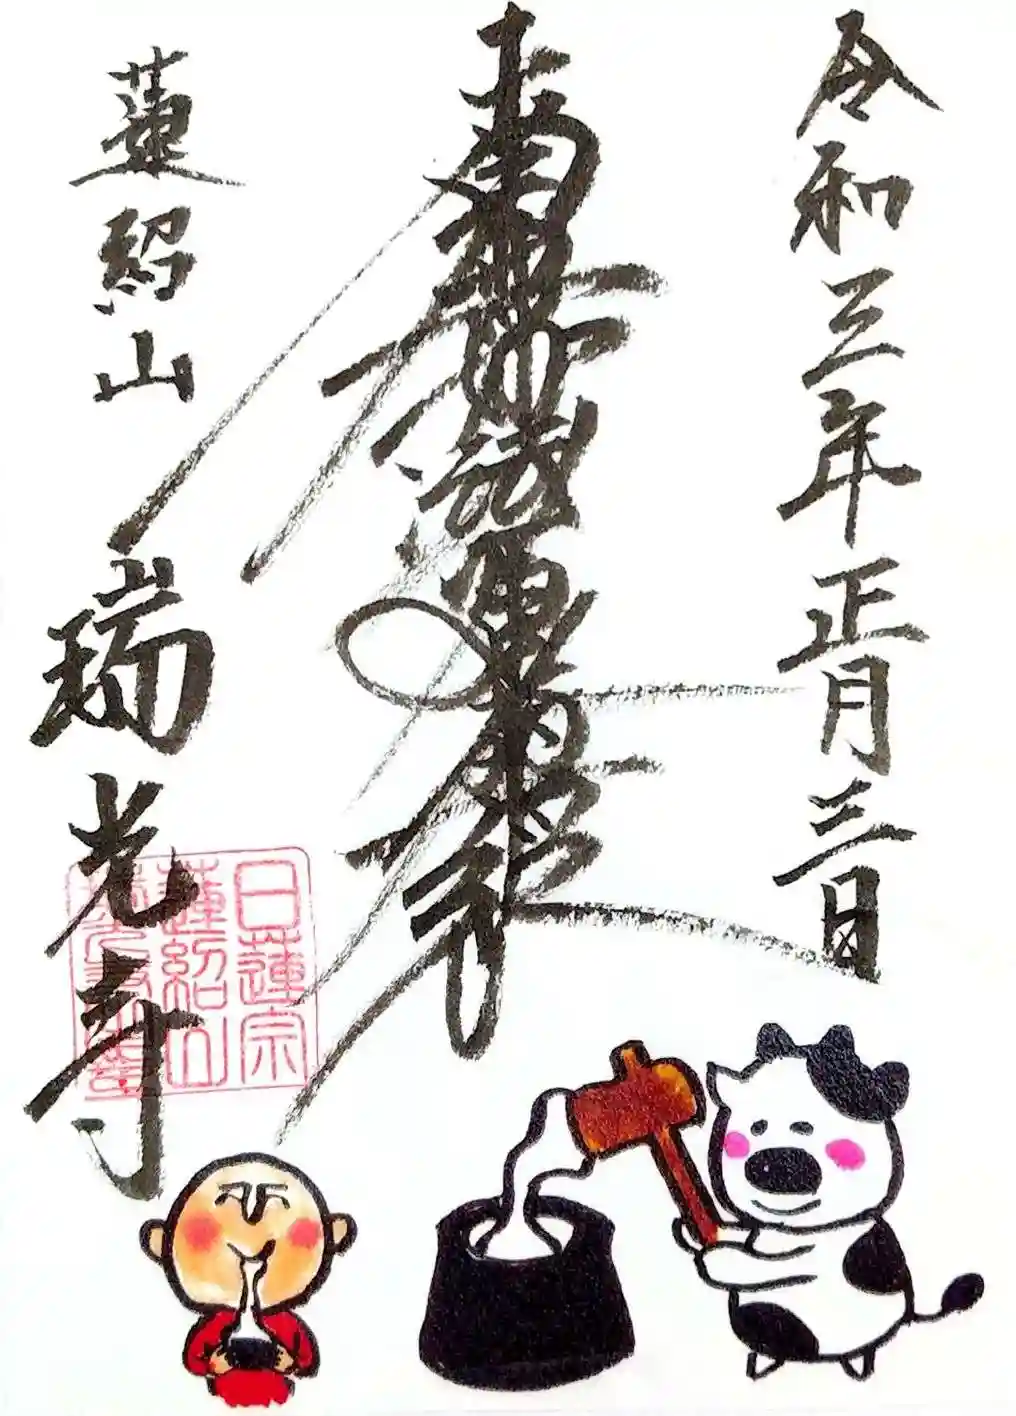 令和三年正月三日
南無妙法蓮華経
蓮紹山
瑞光寺
日蓮宗
蓮紹山